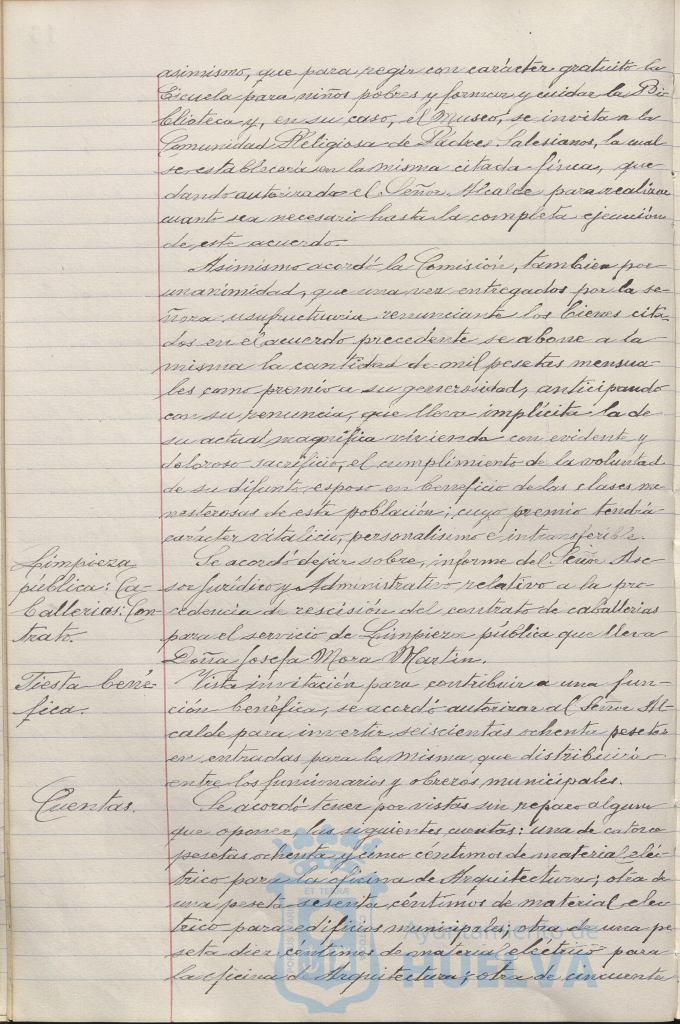 asimismo, que para regir con carácter gratuito la
Escuela para niños pobres y formar y cuidar la Bi-
blioteca y, en su caso, el Museo, se invita a la
Comunidad Religiosa de Padres Salesianos, la cual
se establecería en la misma citada finca, que-
dando autorizado el Señor Alcalde para realizar
cuanto sea necesario hasta la completa ejecución
de este acuerdo.
Asimismo acordó la Comisión, también por
unanimidad, que una vez entregados por la se-
ñora usufructuaria renunciante los bienes cita-
dos en el acuerdo precedente se abone a la
misma la cantidad de mil pesetas mensua-
les como premio a su generosidad, anticipando
con su renuncia, que lleva implícita la de
su actual magnífica vivienda con evidente y
doloroso sacrificio, el cumplimiento de la voluntad
de su difunto esposo en beneficio de las clases me-
nesterosas de esta población; cuyo premio tendrá
carácter vitalicio, personalísimo e intransferible.
Limpieza
pública: Ca-
ballerías: Con-
trato.
Se acordó dejar sobre, informe del Señor Ase-
sor Jurídico y Administrativo relativo a la pro-
cedencia de rescisión del contrato de caballerías
para el servicio de Limpieza pública que lleva
Doña Josefa Mora Martín.
Fiesta bené-
fica.
Vista invitación para contribuir a una fun-
ción benéfica, se acordó autorizar al Señor Al-
calde para invertir seiscientas ochenta pesetas
en entradas para la misma que distribuirá
entre los funcionarios y obreros municipales.
Cuentas.
Se acordó tener por vistas sin reparo alguno
que oponer, las siguientes cuentas: una de catorce
pesetas ochenta y cinco céntimos de material eléc-
trico para la oficina de Arquitectura; otra de
una peseta sesenta céntimos de material eléc-
trico para edificios municipales; otra de una pe-
seta diez céntimos de material eléctrico para
la oficina de Arquitectura; otra de cincuenta
Ayuntamiento de
HUELVA